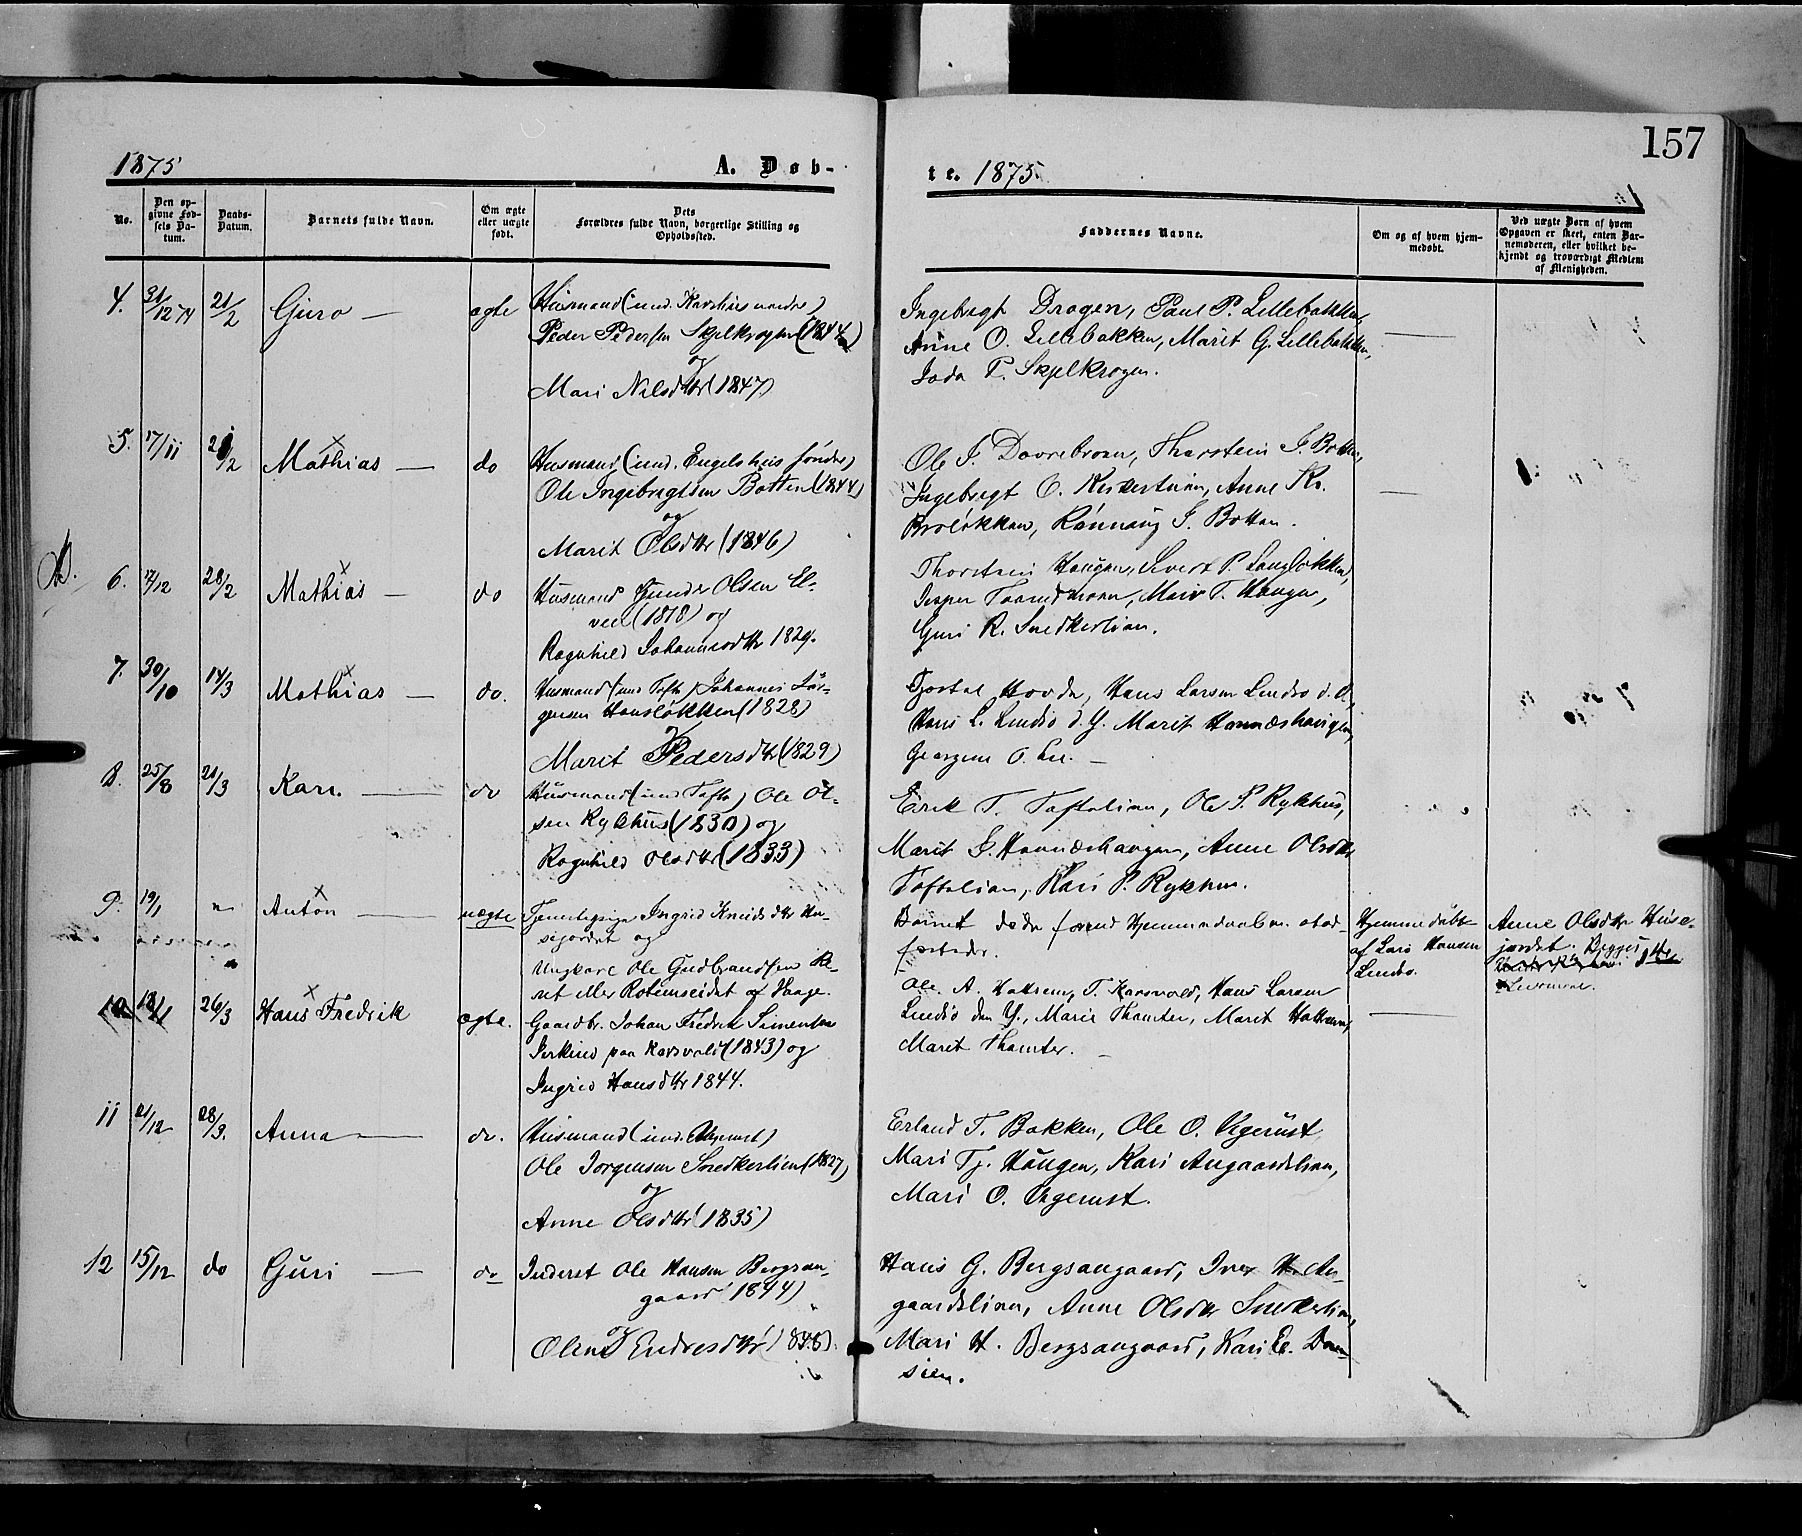 157
1875 A. Døb-
te. 1875.
No.
Den op-
givne Fød-
sels Da-
tum.
Daabs-
Datum.
Barnets fulde Navn.
Om ægte
eller uægte
født.
Dets
Forældres fulde Navn, borgerlige Stilling og
Opholdssted.
Faddernes Navne.
Om og af hvem hjem-
medøbt.
Ved uægte Børn af hvem
Opgaven er skeet, enten Bar-
nemoderen, eller hvilket be-
kjendt og troværdigt Medlem
af Menigheden.
4. 31/12 74 21/2 Guro — ægte Husmand (und.
Peder Pedersen Skjelkrogen (1844)
og
Mari Nilsdtr (1847)
Ingebregt Dragen, Paul P. Lillebakken,
Anne O. Lillebakken, Marit G. Lillebakken,
P. Skjelkrogen.
5. 17/11 21/2 Mathias — do Husmand (und. Engelshus søndre)
Ole Ingebregtsen Botten (1844)
og
Marit Olsdtr (1846)
Ole J. Thorstein J. Botten,
Ingebregt O. Anne Kr.
Broløkken, Rønnaug J. Botten.
6. 17/12 28/2 Mathias — do Husmand Gunder Olsen El-
ven (1818) og
Ragnhild Johannesdtr 1829.
Thorstein Haugen, Sivert P. Langløkken,
Jesper Mari T. Haugen,
Guri R. Snedkerlien.
7. 30/10 14/3 Mathias — do. Husmand (und Tofte) Johannes Jør-
gensen Hansløkken (1828)
og
Marit Pedersdtr (1829)
Tjostel Hovde, Hans Larsen Lindsø d. Æ,
Hans L. Lindsø d. Y. Marit Havnæshaugen,
Georgine O. Lie. —
8. 25/8 21/3 Kari. — do Husmand (und Tofte) Ole Ol-
sen Rykhus (1830) og
Ragnhild Olsdtr (1833)
Erik T. Toftelien, Ole P. Rykhus,
Marit J. Havnæshaugen, Anne Olsdtr
Toftelien, Kari P. Rykhus.
9. 19/1 " Anton — uægte Tjenestepige Ingrid Knudsdtr Hu-
sejordet og
Ungkarl Ole Gudbrandsen
af Vaage.
Barnet døde forend Hjemmedaaben stad-
fæstedes.
Hjemmedøbt
af Lars Hansen
Lindsø.
Anne Olsdtr Huse-
jordet.
10 18/1 26/3 Hans Fredrik ægte. Gaardbr. Johan Fredrik Simensen
Jerkind paa Korsvold (1843) og
Ingrid Hansdtr 1844.
Ole A. Hattrem, T. Korsvold, Hans Larsen
Lindsø den Y., Marie Thamter, Marit Hattrem,
Marit Thamter. —
11 21/12 28/3. Anna — do. Husmand (und. Ulgerust)
Ole Jorgensen Snedkerlien (1827)
og
Anne Olsdtr (1835)
Erland T. Bakken, Ole O. Ulgerust,
Mari Tj. Haugen, Kari Angaardslien,
Mari O. Ulgerust.
12 15/12 do Guri — do Inderst Ole Hansen Bergsan-
gaard 1844)
og
Oline Endresdtr (1848).
Hans G. Bergsangaard, Iver H. An-
gaardslien, Anne Olsdtr Snedkerlien,
Mari H. Bergsangaard, Kari E.